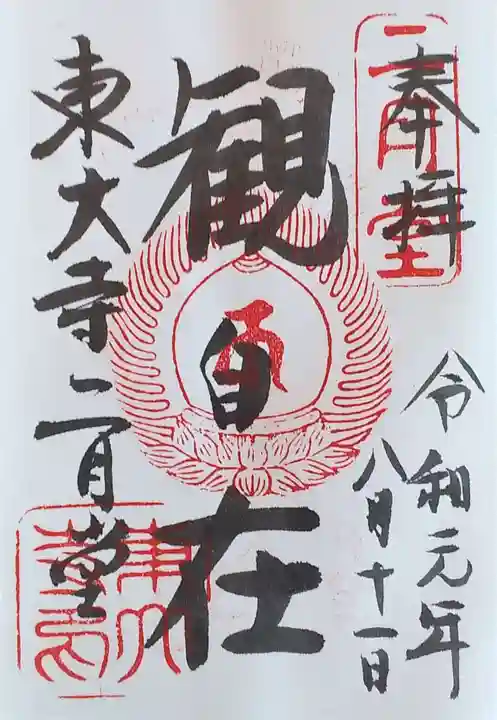 奉拝
二月堂
令和元年
八月十一日
観自在
東大寺二月堂